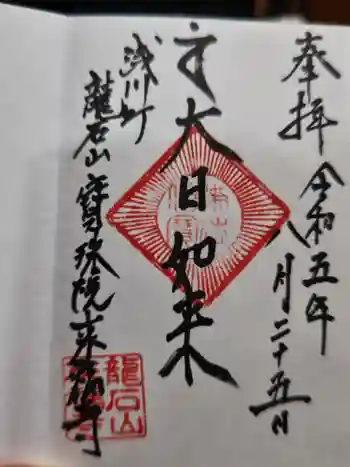 奉拝
令和五年
八月二十五日
大日如来
浅川町
龍石山寶珠院東福寺
龍石山